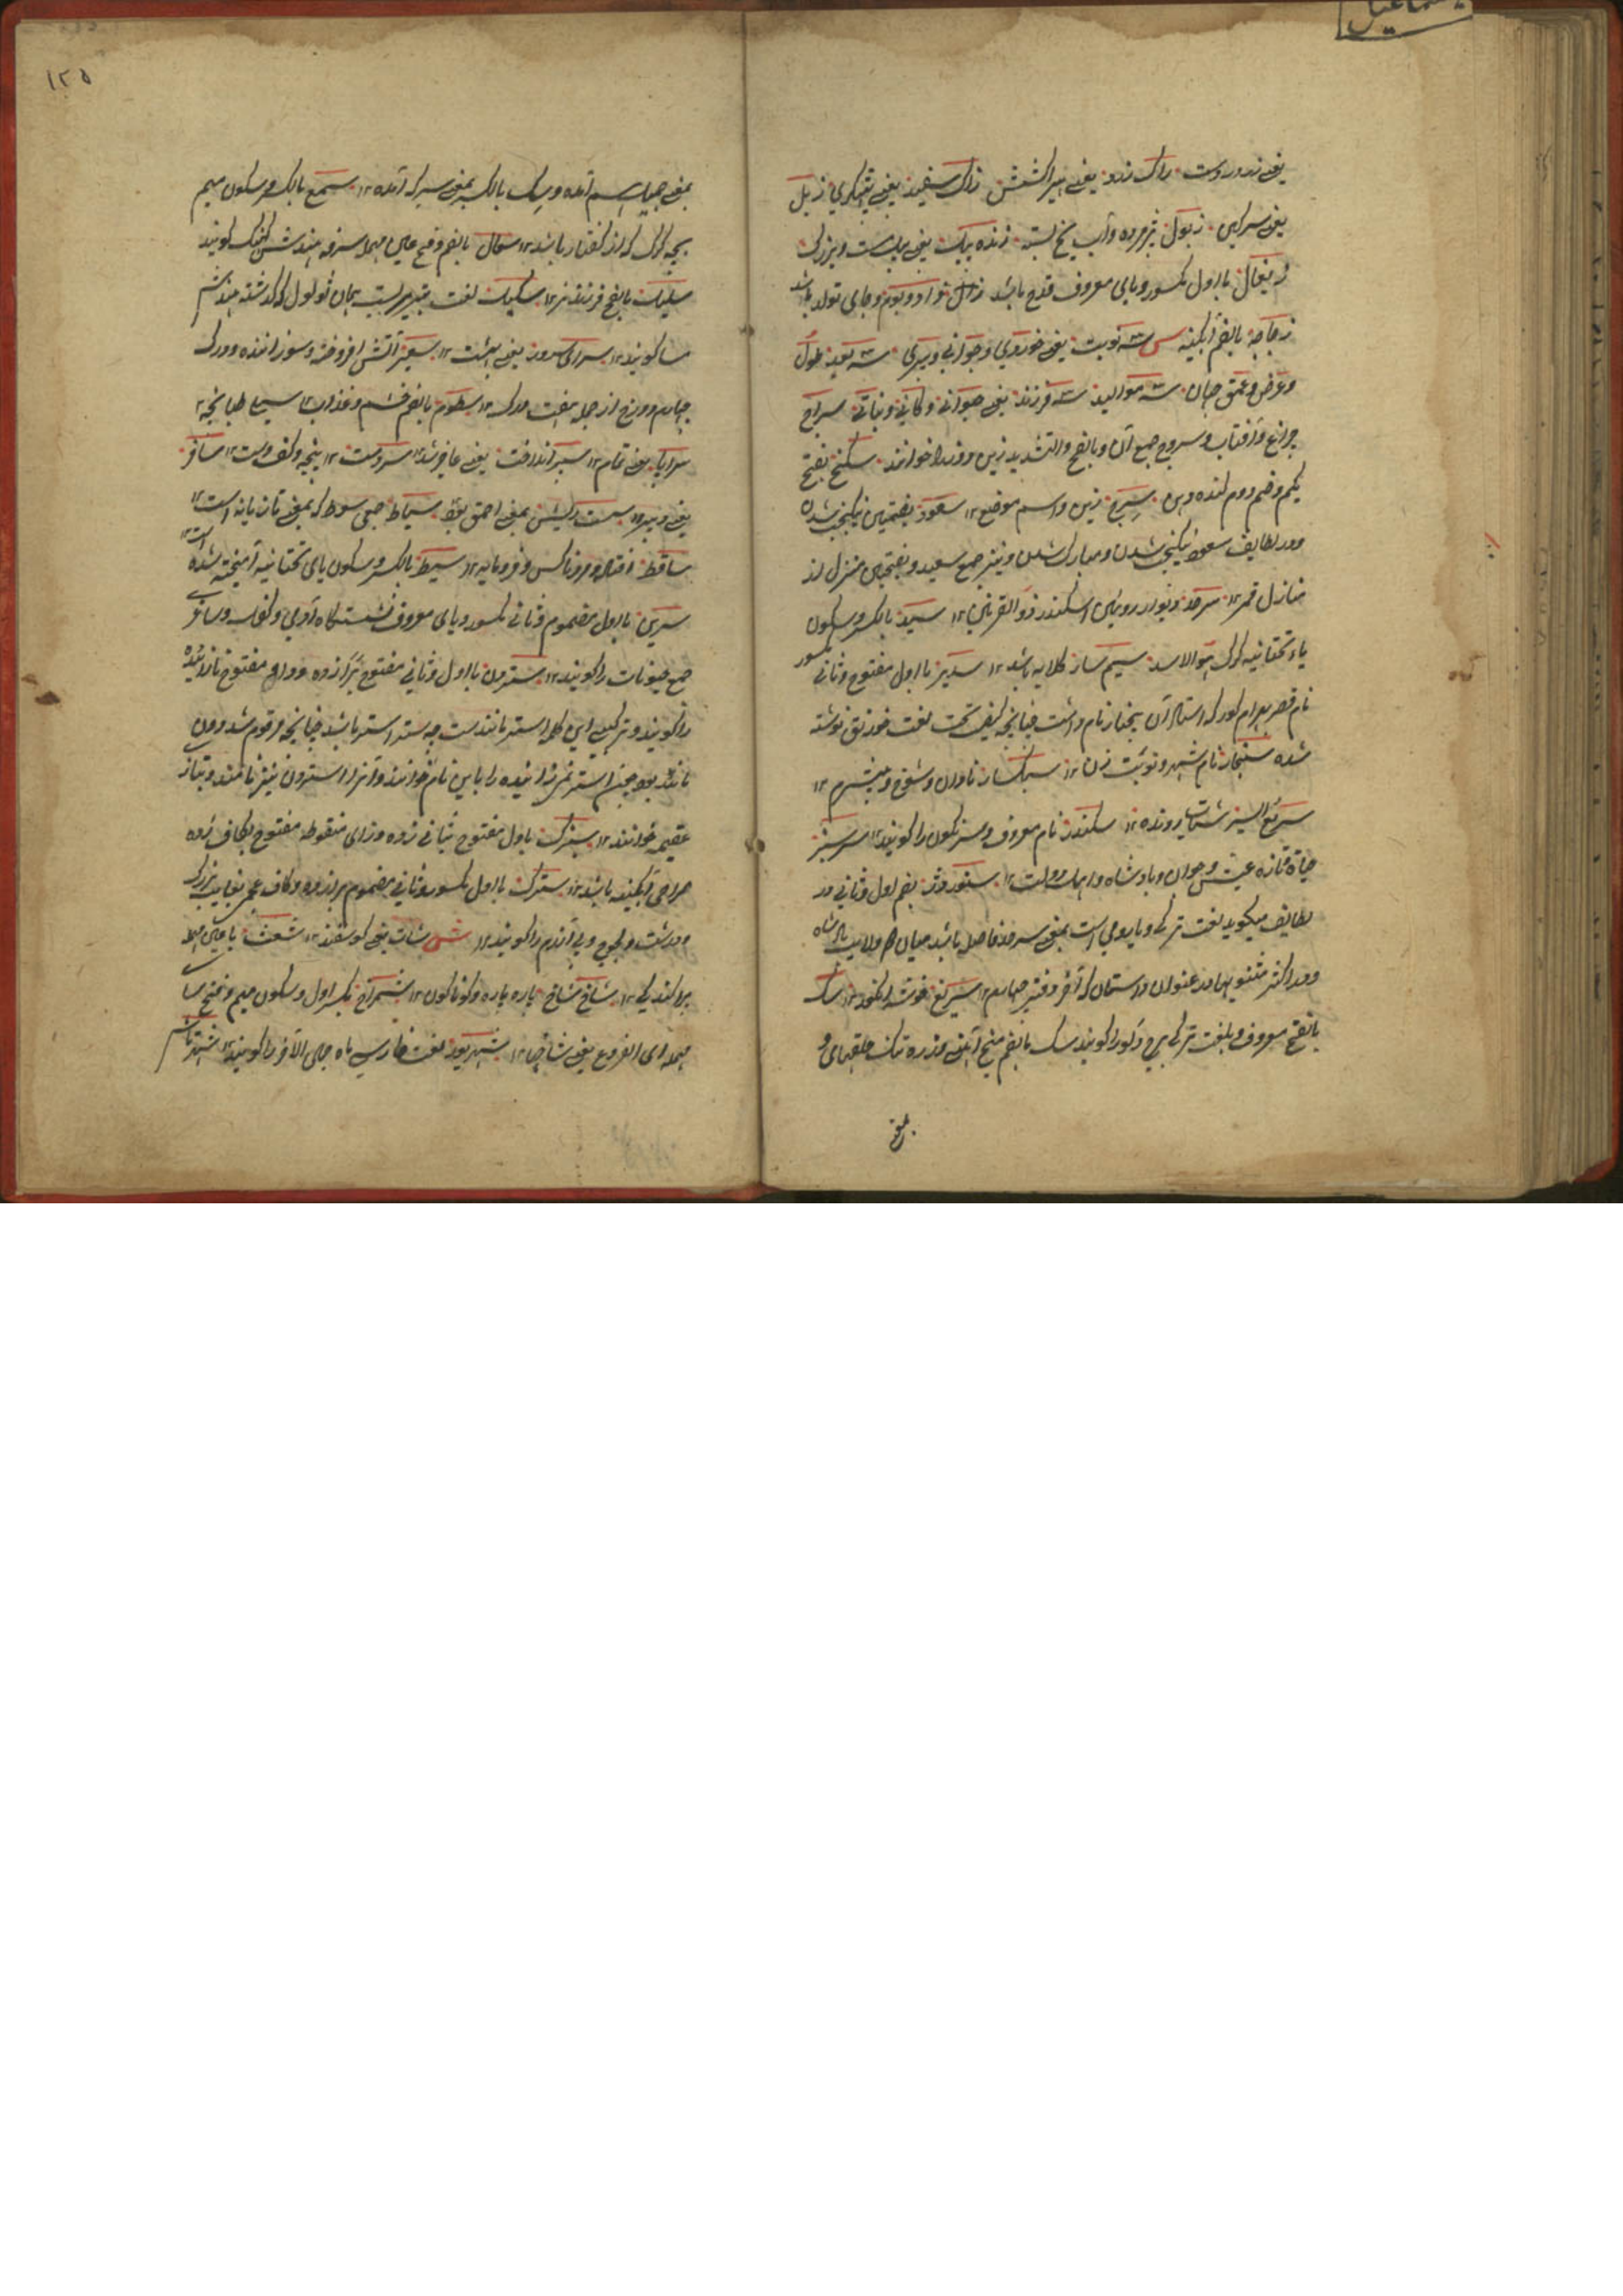 یعنی زردوست زاک زرد یعنی هیراکشش زاک سفید یعنی پتکری زبل
یعنی سرکین زبول پژمرده و آب یخ بسته زنده پیک یعنی پیک مست و بزرک
زیغال با اول مکسور و یای معروف قدح باشد زال نوادر و بوم و جای تولد باشد
زجاجه بالضم آبکینه س سه نوبت یعنی خوردی و جوانی و پیری سه بعید طول
و عرض و عمق جهان سه موالید سه فرزند یعنی حیوانی و کانی و نباتی سراج
چراغ و آفتاب و سروج جمع آن و بالفتح و التشدید زین و فند را خوانند سکنج بفتح
یکم و ضم دوم کنده دهن سرج زین و اسم موضع ۱۲ سعود بضمتین نیکبخت شدن
و در لطایف سعود نیکبخت شدن و مبارک شدن و نیز جمع سعید و بفتحتین منزل از
منازل قمر ۱۲ سرحد دیوار رویین اسکندر ذو القرنین ۱۲ سید بالکسر و سکون
یاء تحتانیه کرک هو الاسد سیم سار کلابه باشد ۱۲ سدیر با اول مفتوح و ثانی مکسور
نام قصر بهرام کور که استاد آن سنمار نام داشت چنانچه کیفیت تحت لغت خورنق نوشته
شده سنجار نام شهر و نوبت زن ۱۲ سبکسار نادان و شوخ و بیشرم ۱۲
سریع السیر شتاب رونده ۱۲ سکندر نام معروف و سرنکون را کویند ۱۲ سرسبز
حیاة و تازه عیش و جوان و پادشاه و اهل دولت ۱۲ سنور و نیز بضم اول و ثانی در
لطایف میکوید لغت ترکی و یا رومی است بمعنی سرحد فاصل باشد میان دو ولایت پادشاه
و در اکثر مثنویها در عنوان داستان که آخر دفتر چهارم ۱۲ سریع خوشه انکور ۱۲ سک
بالفتح معروف و بلغت ترکی برج دلو را کویند سک بالضم میخ آهنی و زره تنک حلقهای و
بمعنی
۱۲۵
بمعنی چهار اسم آمده و سک بالکسر بمعنی سرکه آمده ۱۲ سمع بالکسر و سکون میم
بچه کرک که از کفتار باشد ۱۲ سعال بالضم و فتح عین مهمله سرفه هندش کهنک کویند
سلیک بالفتح فرزند نر ۱۲ سکبک لغت تبریزیست بمان ذو لول که کذشته هندش
سا کویند ۱۲ سرای سرور یعنی بهشت ۱۲ سعیر آتش افروخته و سوزاننده و درک
چهارم دوزخ از جمله هفت درک ۱۲ سطوم بالضم خشم و عذاب ۱۲ سیلی طپانچه ۱۲
سراپا یعنی تمام ۱۲ سپر انداخت یعنی عاجز شد ۱۲ سردست ۱۲ پنجه و کف دست ۱۲ سافر
یعنی دبیر ۱۲ سست ریش بمعنی احمق بود سیاط جمع سوط که بمعنی تازیانه است ۱۲
ساقط افتاده و ناکس و فرومایه ۱۲ سیط بالکسر و سکون یای تحتانیه آمیخته شده است ۱۲
سرین با اول مضموم و ثانی مکسور و یای معروف نشستکاه آدمی و کفل و ساغری
جمع حیوانات را کویند ۱۲ سترون با اول و ثانی مفتوح برا زده و واو مفتوح نازاینده
را کویند و ترکیب این کلمه استر مانند است چه ستر استر باشد چنانچه مرقوم شد و ون
مانند بود چون استر نمی زاید زن نازاینده را باین نام خوانند و آنرا استرون نیز نامند و بتازی
عقیمه خوانند ۱۲ سبزک با اول مفتوح بثانی زده و زای منقوطه مفتوح بکاف زده
صراحی آبکینه باشد ۱۲ سترک با اول مکسور و ثانی مضموم برا زده و کاف عجمی بغایت بزرک
و درشت و لجوج و بی آزرم را کویند ۱۲ ش شات یعنی کوسفند ۱۲ شعث با عین مهمله
پراکندکی ۱۲ شاخ شاخ پاره پاره و کوناکون ۱۲ شمراخ بکسر اول و سکون میم و فتح سا
مهمله ای الفروع یعنی شاخها ۱۲ شهریور لغت فارسی ماه جمادی الآخر را کویند ۱۲ شهر نام